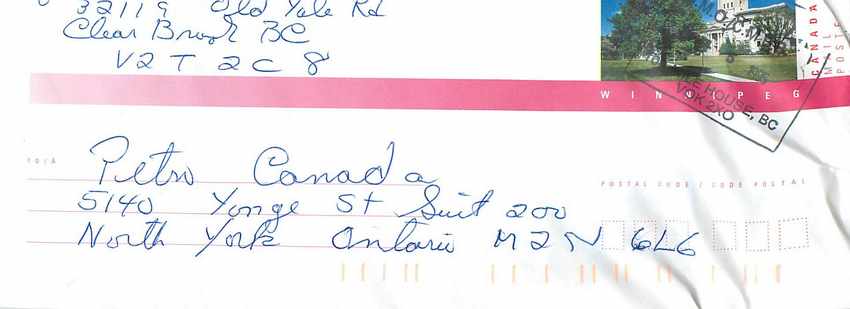 32119 Old Yale Rd
Clear Brook BC
V2T 2C8
CANADA
POSTE
WINNIPEG
HOUSE, BC
V0K 2X0
Petro Canada
5140 Yonge St Suit 200
POSTAL CODE / CODE POSTAL
North York Ontario M2N 6L6